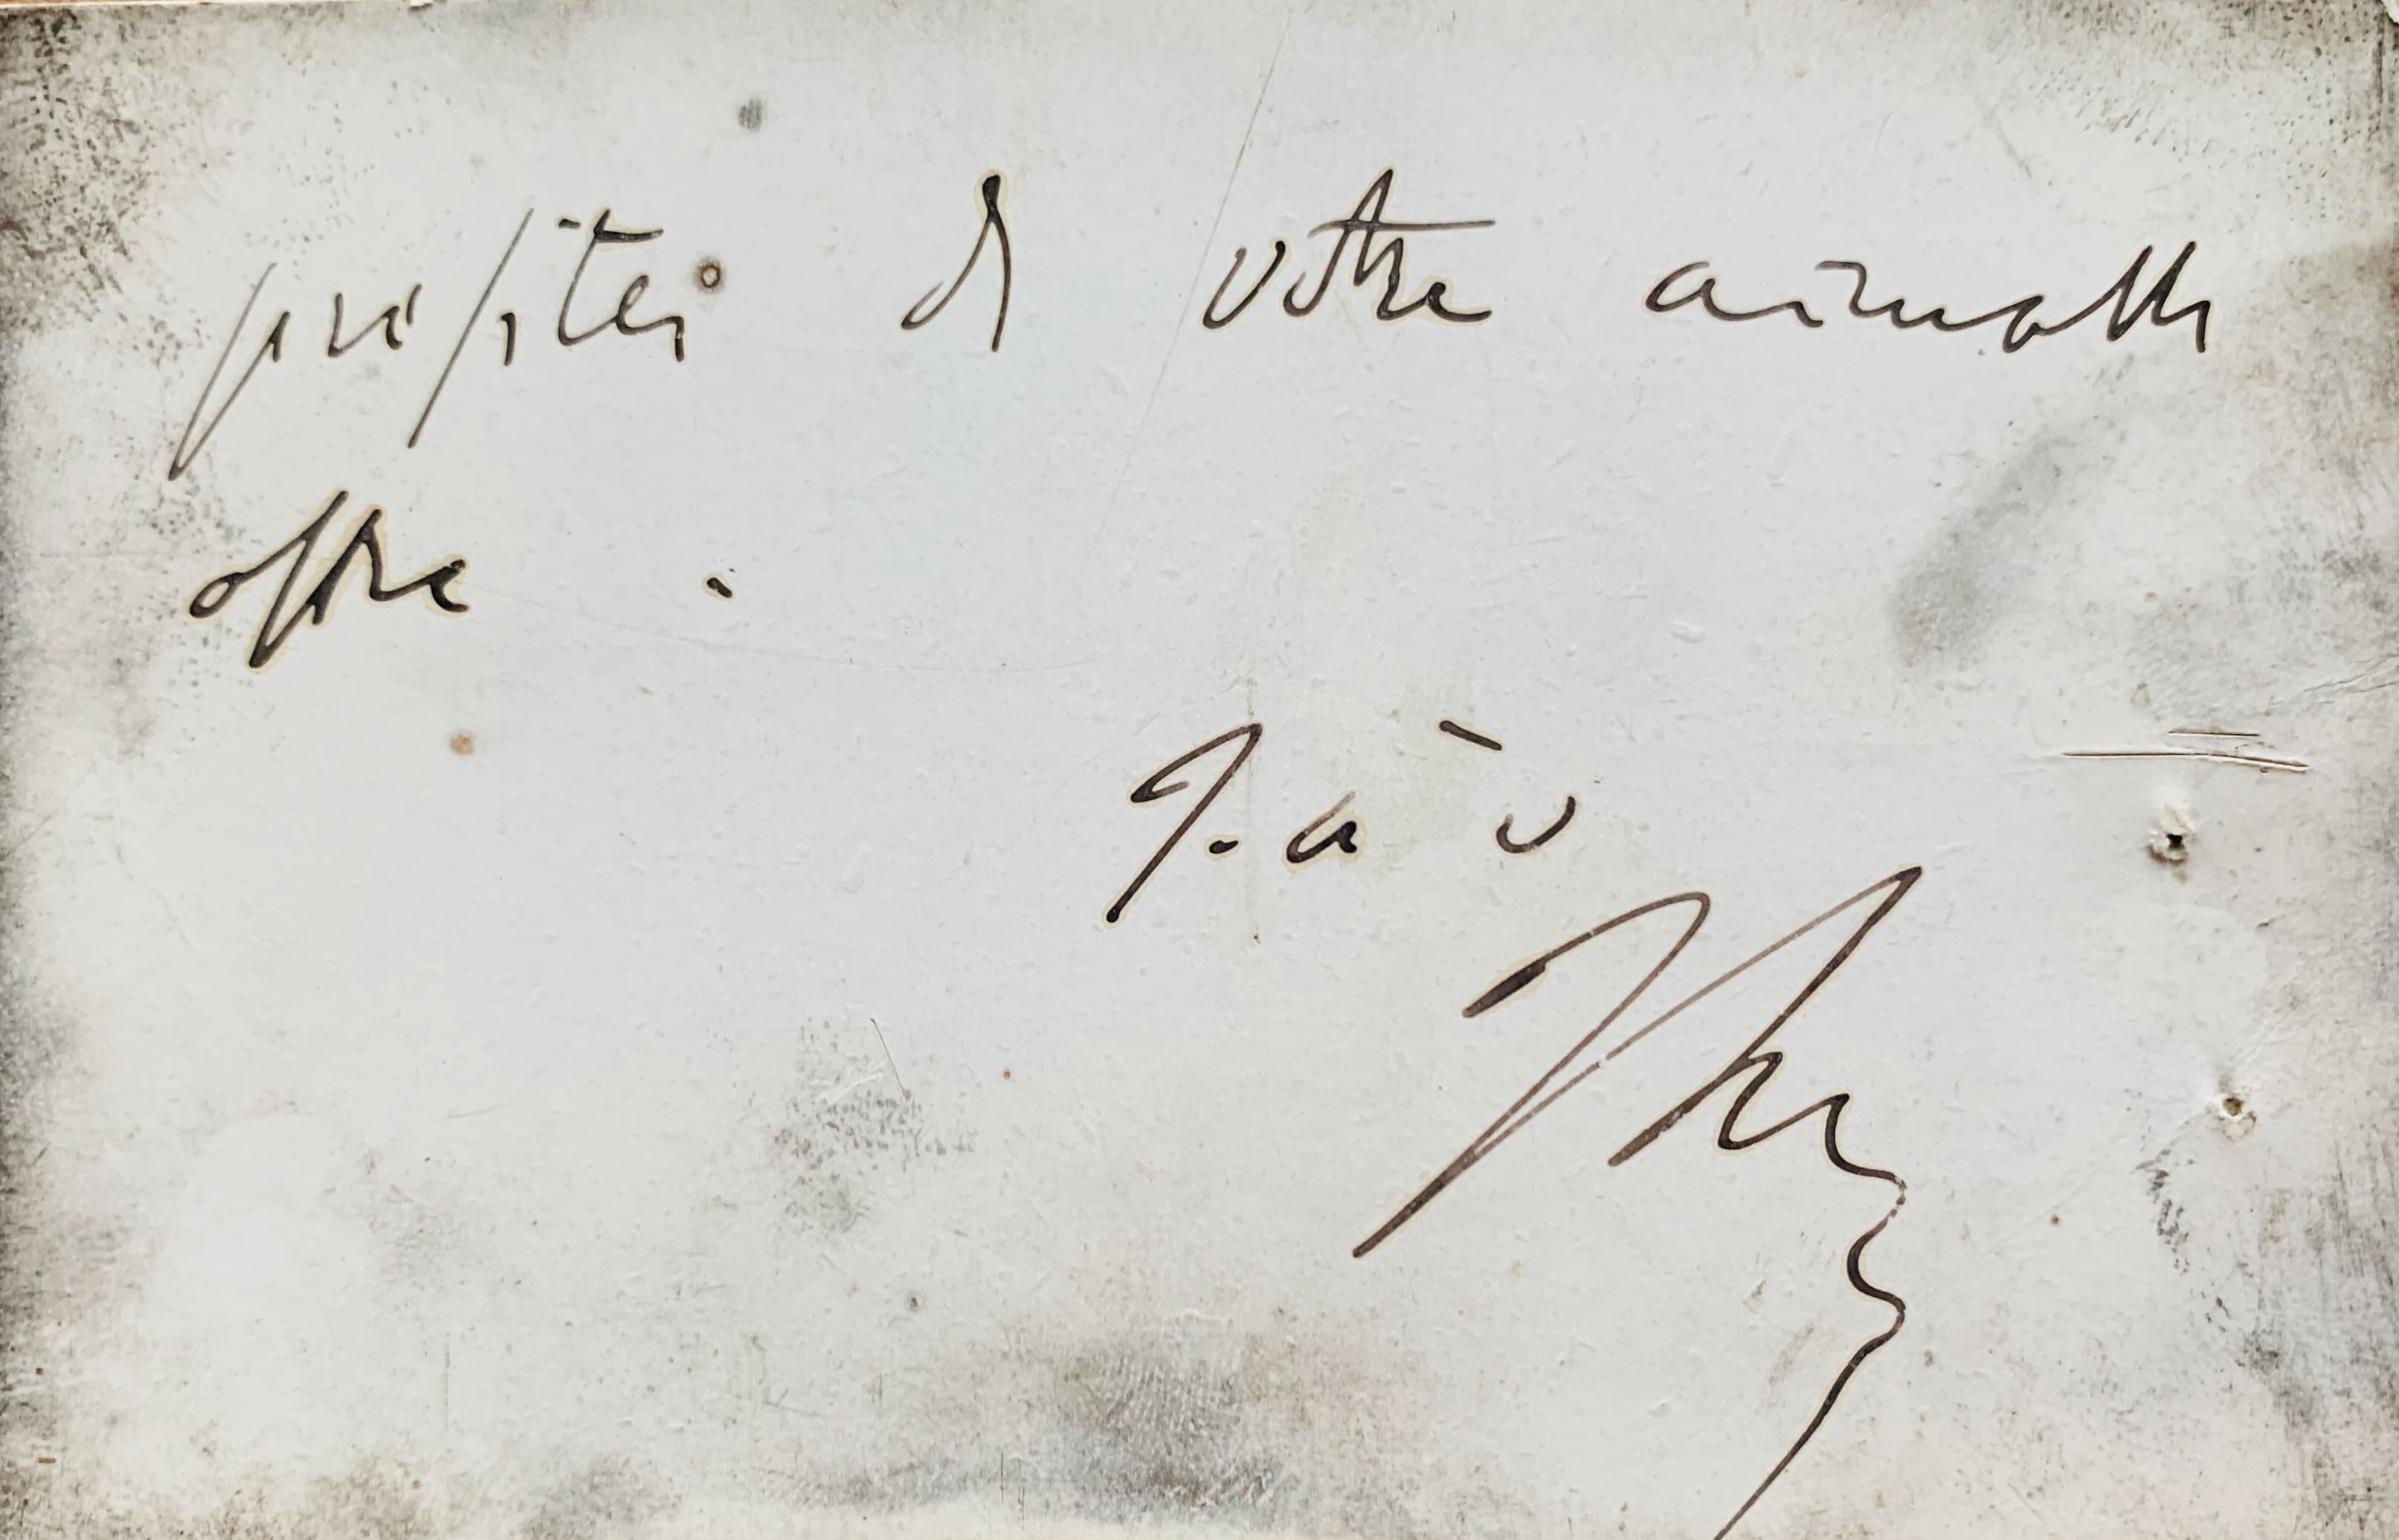 profiter de votre aimable
offre .
T. à v